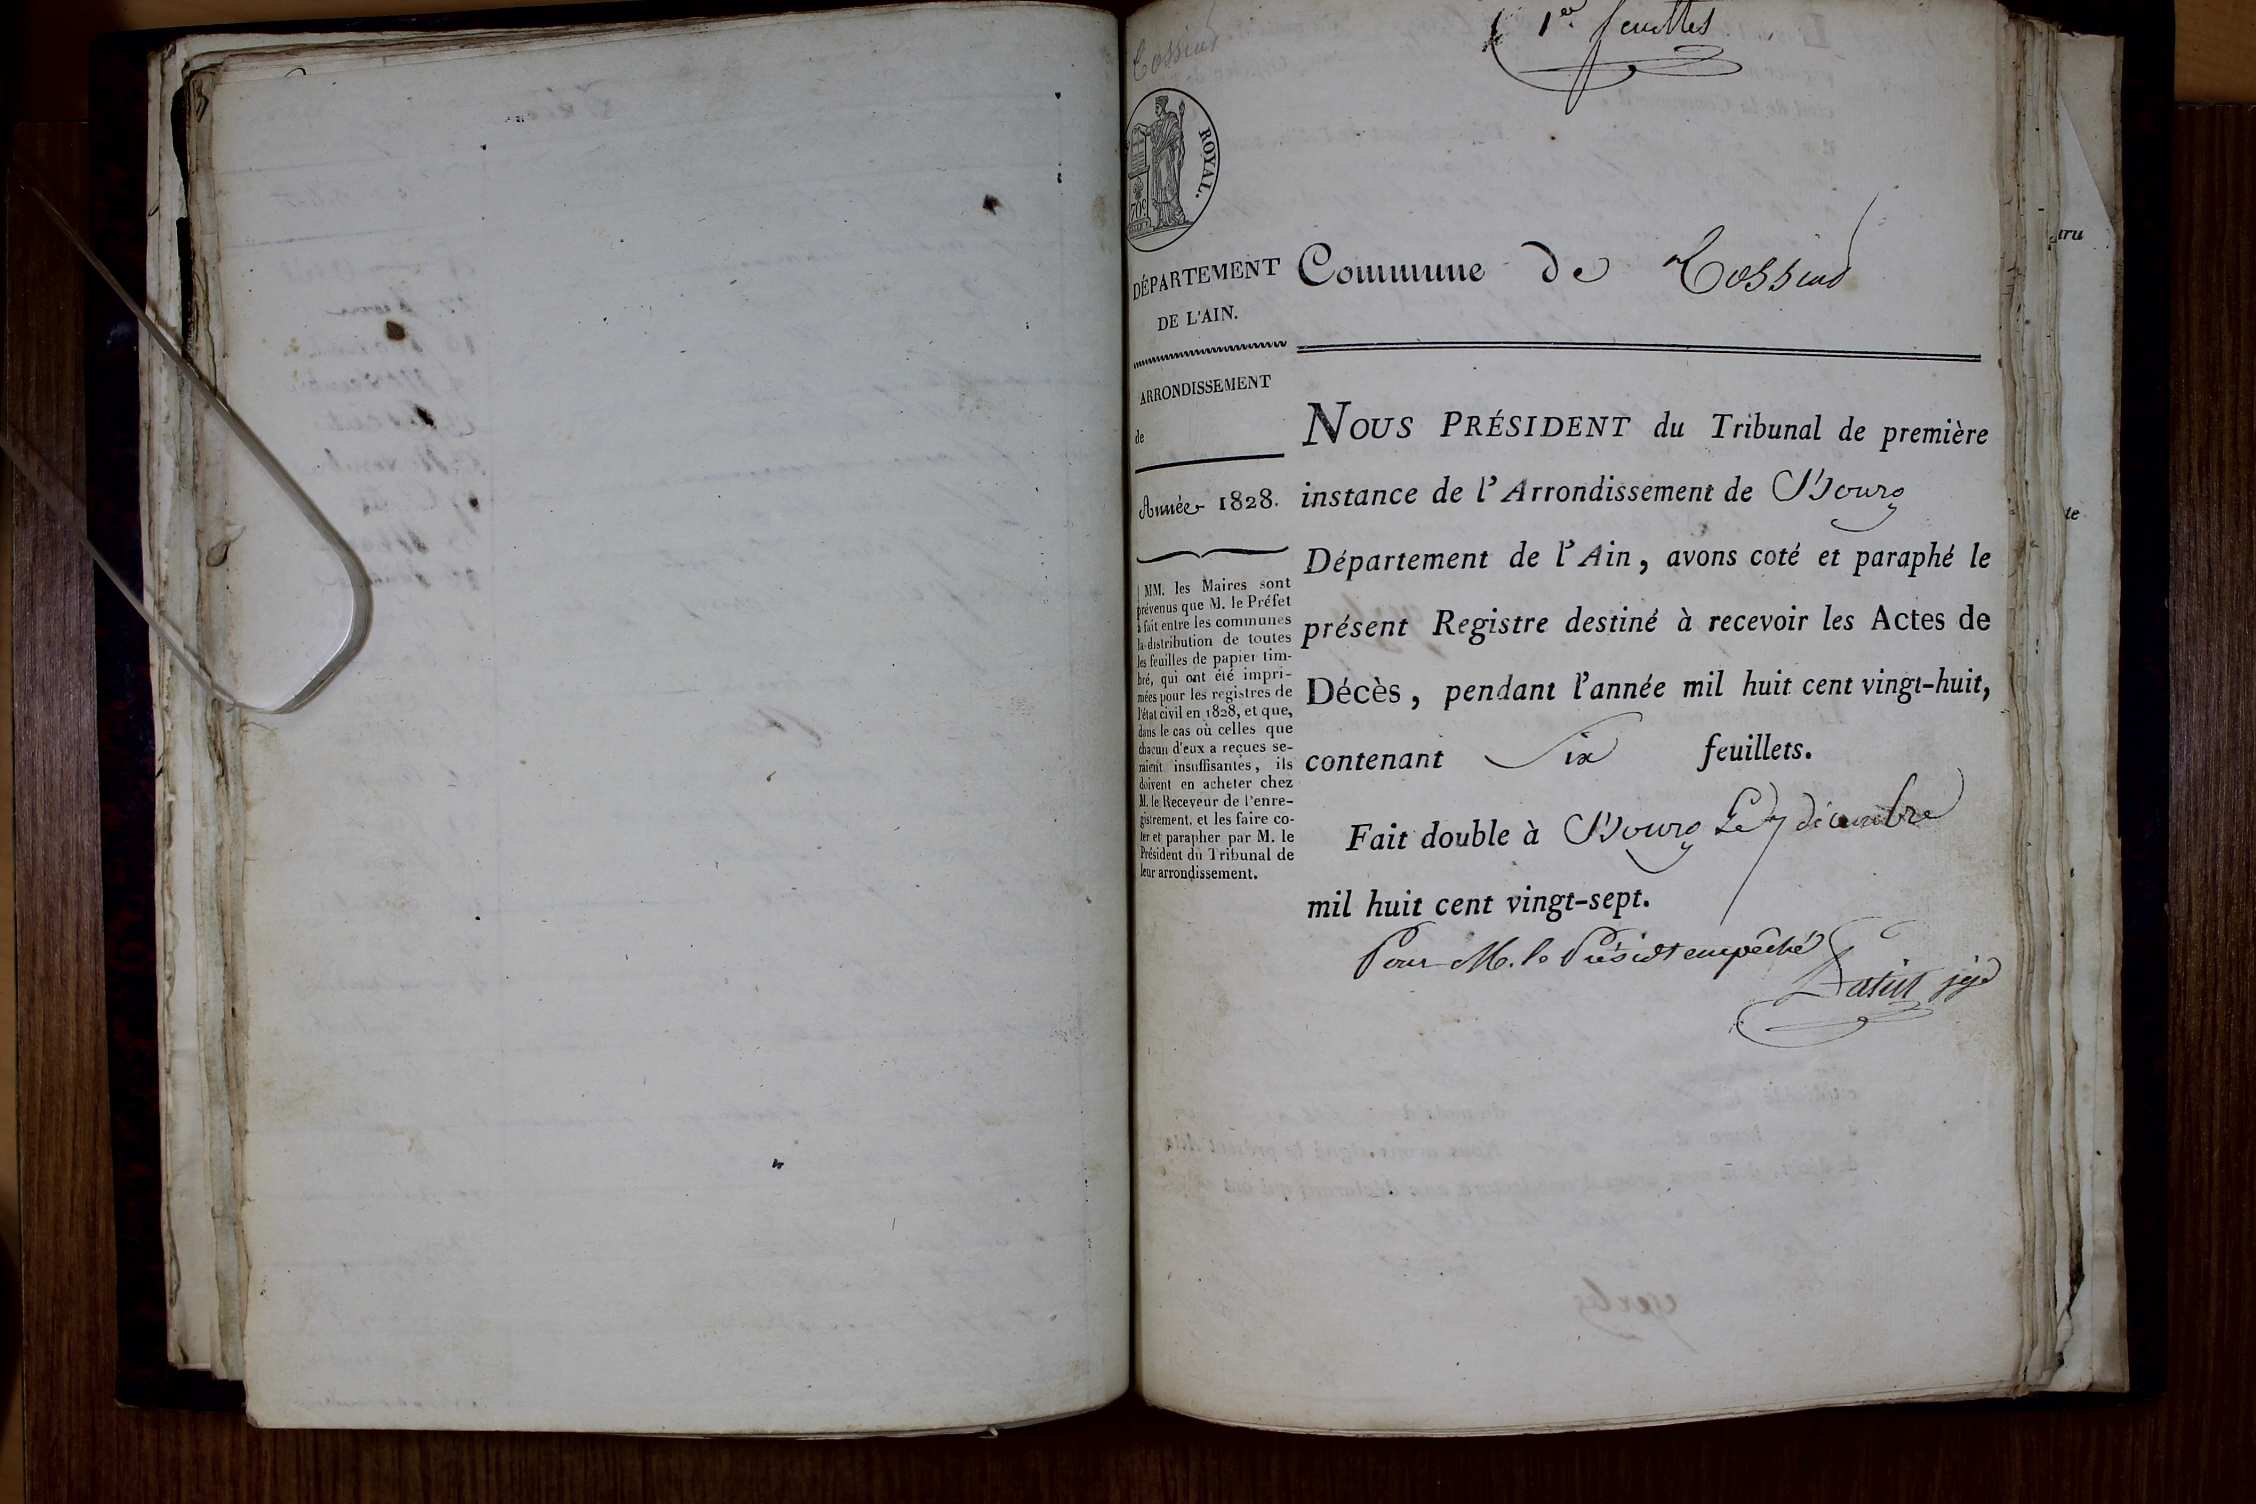 1er feuillet
Tossiat
ROYAL.
70c
DÉPARTEMENT
DE L'AIN.
Commune de Tossiat
ARRONDISSEMENT
de
Année 1828.
MM. les Maires sont
prévenus que M. le Préfet
a fait entre les communes
la distribution de toutes
les feuilles de papier tim-
bré, qui ont été impri-
mées pour les registres de
l'état civil en 1828, et que,
dans le cas où celles que
chacun d'eux a reçues se-
raient insuffisantes, ils
doivent en acheter chez
M. le Receveur de l'enre-
gistrement, et les faire co-
ter et parapher par M. le
Président du Tribunal de
leur arrondissement.
NOUS PRÉSIDENT du Tribunal de première
instance de l'Arrondissement de Bourg
Département de l'Ain, avons coté et paraphé le
présent Registre destiné à recevoir les Actes de
Décès, pendant l'année mil huit cent vingt-huit,
contenant Six feuillets.
Fait double à Bourg Le 7 décembre
mil huit cent vingt-sept.
Pour M. le Présidt empêché